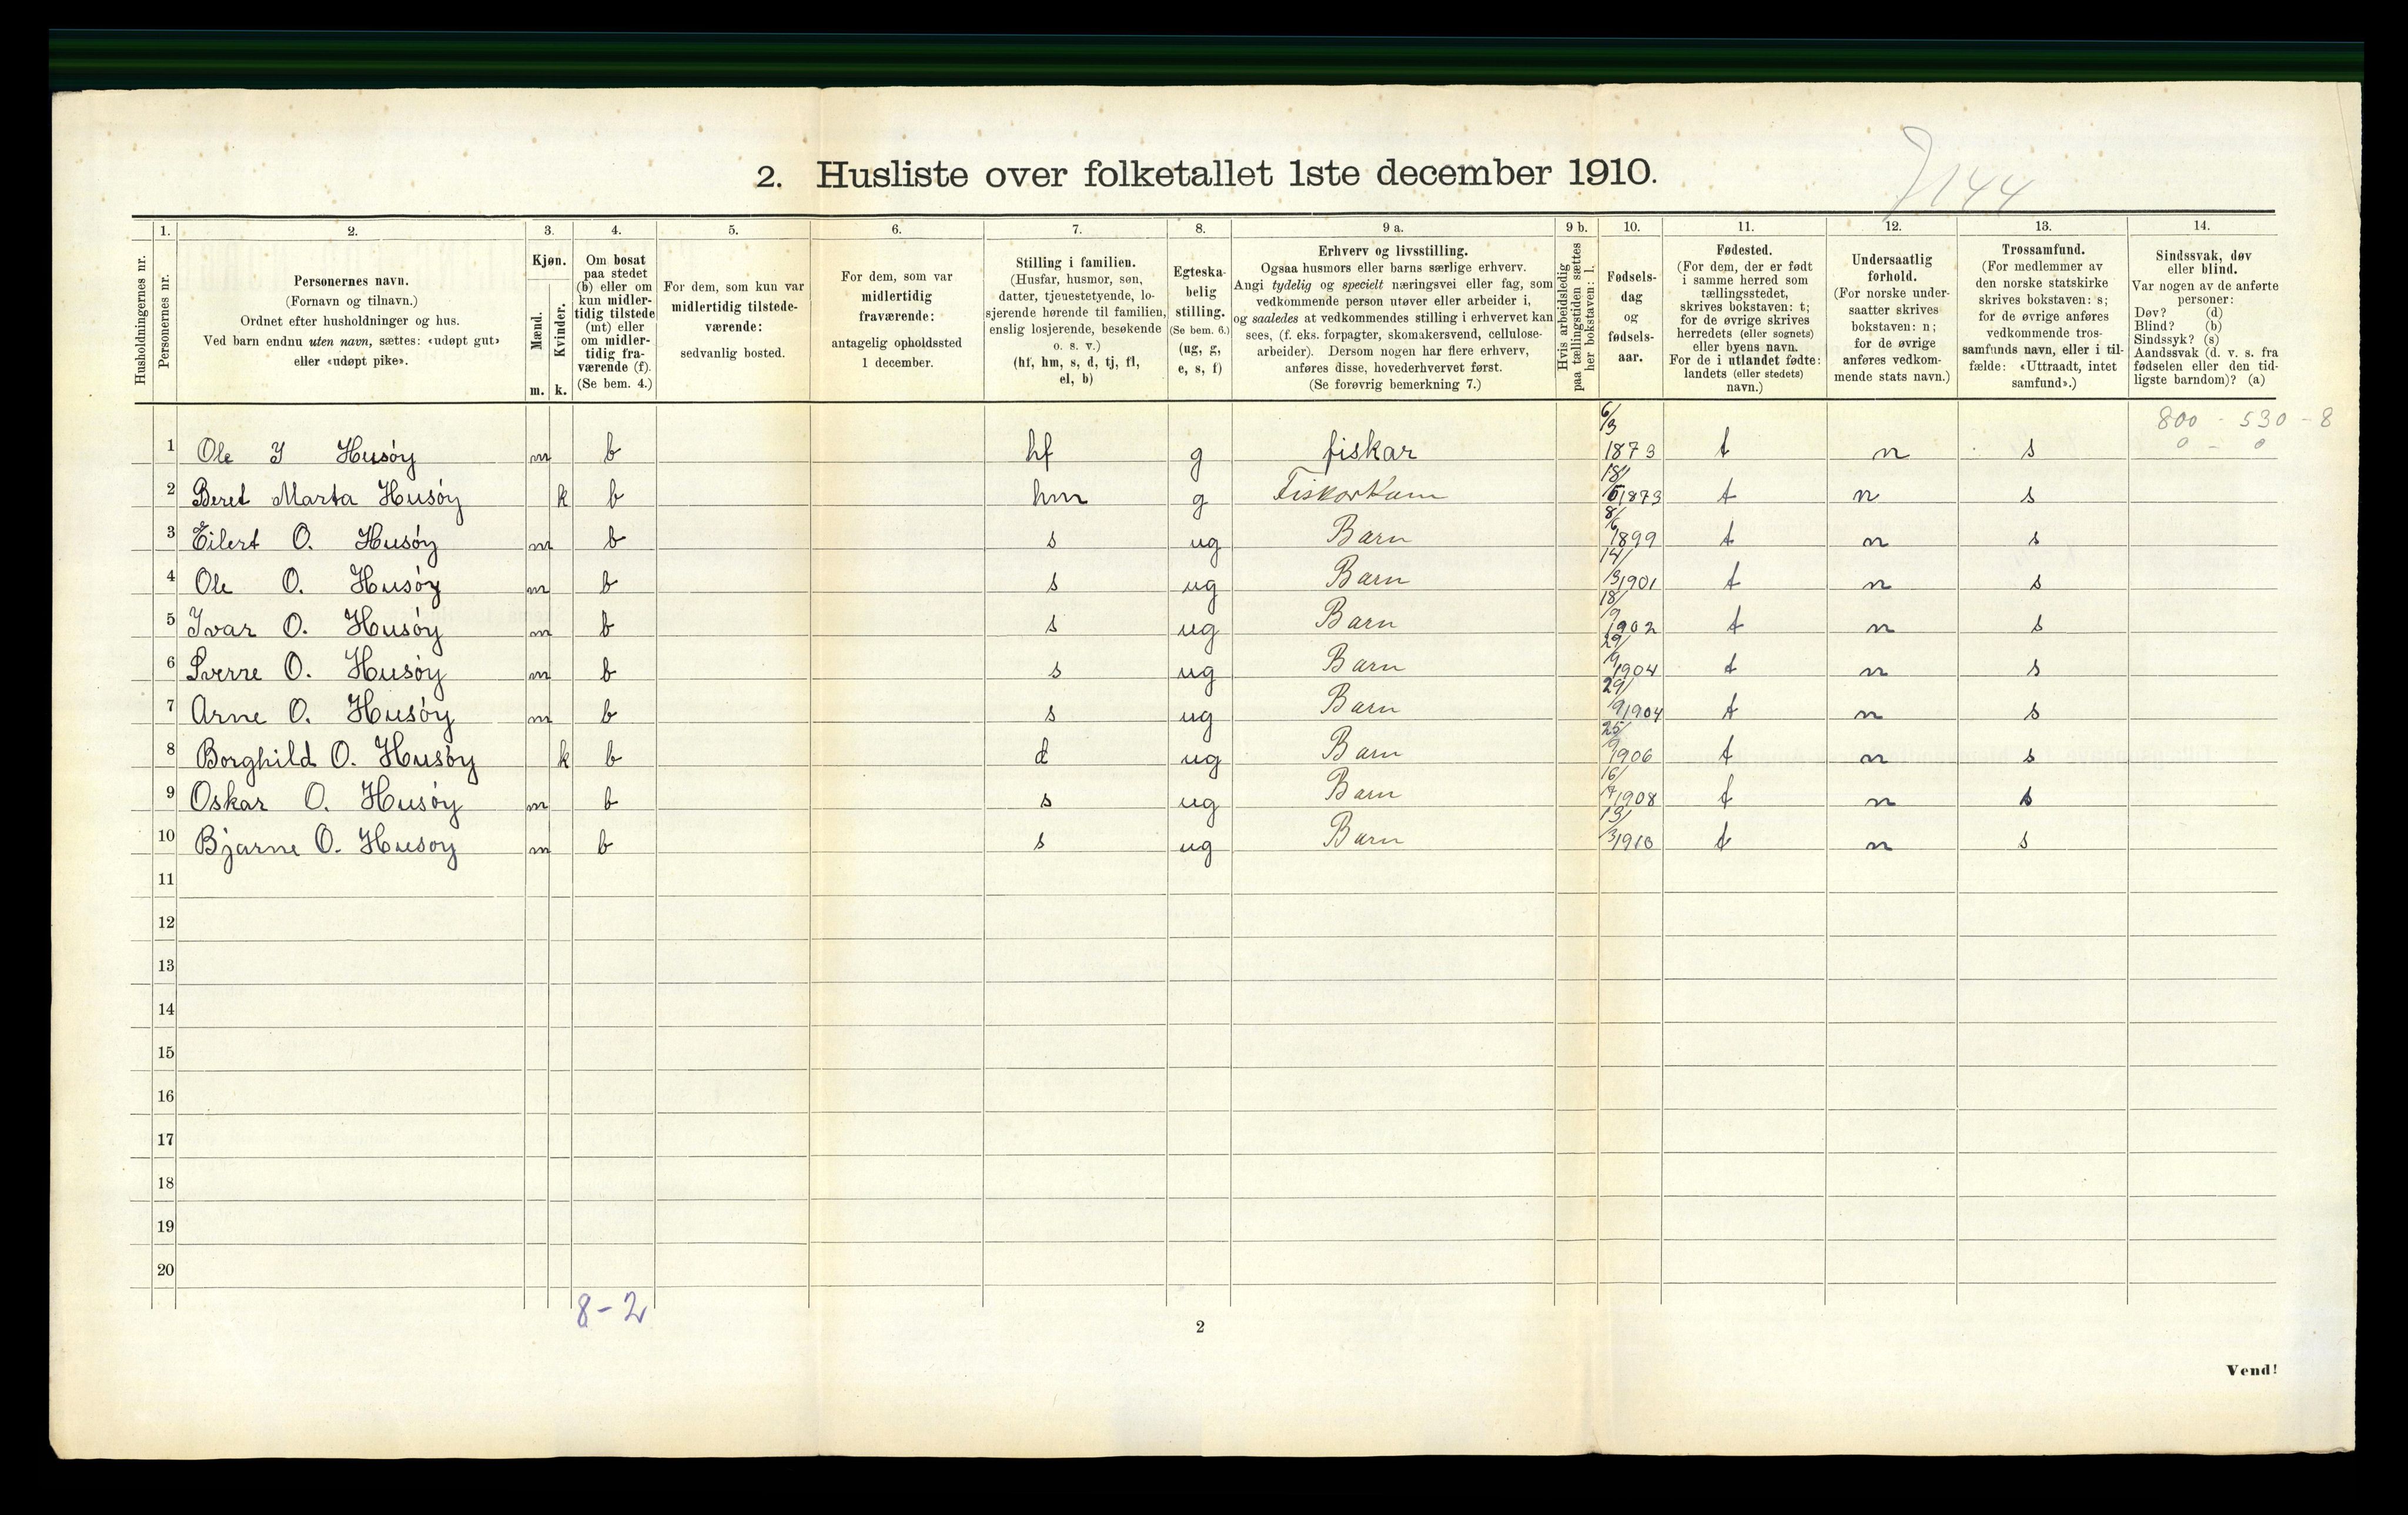 2. Husliste over folketallet 1ste december 1910.
144
1. 2. 3. 4. 5. 6. 7. 8. 9 a. 9 b. 10. 11. 12. 13. 14.
Husholdningernes nr.
Personernes nr.
Personernes navn.
(Fornavn og tilnavn.)
Ordnet efter husholdninger og hus.
Ved barn endnu uten navn, sættes: «udøpt gut»
eller «udøpt pike».
Kjøn.
Mænd.
Kvinder.
m. k.
Om bosat
paa stedet
(b) eller om
kun midler-
tidig tilstede
(mt) eller
om midler-
tidig fra-
værende (f).
(Se bem. 4.)
For dem, som kun var
midlertidig tilstede-
værende:
sedvanlig bosted.
For dem, som var
midlertidig
fraværende:
antagelig opholdssted
1 december.
Stilling i familien.
(Husfar, husmor, søn,
datter, tjenestetyende, lo-
sjerende hørende til familien,
enslig losjerende, besøkende
o. s. v.)
(hf, hm, s, d, tj, fl,
el, b)
Egteska-
belig
stilling.
(Se bem. 6.)
(ug, g,
e, s, f)
Erhverv og livsstilling.
Ogsaa husmors eller barns særlige erhverv.
Angi tydelig og specielt næringsvei eller fag, som
vedkommende person utøver eller arbeider i,
og saaledes at vedkommendes stilling i erhvervet kan
sees, (f. eks. forpagter, skomakersvend, cellulose-
arbeider). Dersom nogen har flere erhverv,
anføres disse, hovederhvervet først.
(Se forøvrig bemerkning 7.)
Hvis arbeidsledig
paa tællingstiden sættes
her bokstaven: l.
Fødsels-
dag
og
fødsels-
aar.
Fødested.
(For dem, der er født
i samme herred som
tællingsstedet,
skrives bokstaven: t;
for de øvrige skrives
herredets (eller sognets)
eller byens navn.
For de i utlandet fødte:
landets (eller stedets)
navn.)
Undersaatlig
forhold.
(For norske under-
saatter skrives
bokstaven: n;
for de øvrige
anføres vedkom-
mende stats navn.)
Trossamfund.
(For medlemmer av
den norske statskirke
skrives bokstaven: s;
for de øvrige anføres
vedkommende tros-
samfunds navn, eller i til-
fælde: «Uttraadt, intet
samfund».)
Sindssvak, døv
eller blind.
Var nogen av de anførte
personer:
Døv? (d)
Blind? (b)
Sindssyk? (s)
Aandssvak (d. v. s. fra
fødselen eller den tid-
ligste barndom)? (a)
800 - 530 - 8
0 - 0
1 Ole I Husøy m b hf g fiskar 6/3 1873 t n s
2 Beret Marta Husøy k b hm g 18/5 1873 t n s
3 Eilert O. Husøy m b s ug Barn 8/6 1899 t n s
4 Ole O. Husøy m b s ug Barn 14/3 1901 t n s
5 Ivar O. Husøy m b s ug Barn 18/ 1902 t n s
6 Sverre O. Husøy m b s ug Barn 29/9 1904 t n s
7 Arne O. Husøy m b s ug Barn 29/9 1904 t n s
8 Borghild O. Husøy k b d ug Barn 25/9 1906 t n s
9 Oskar O. Husøy m b s ug Barn 16/ 1908 t n s
10 Bjarne O. Husoy m b s ug Barn 13/3 1910 t n s
11
12
13
14
15
16
17
18
19
20
8-2
2
Vend!